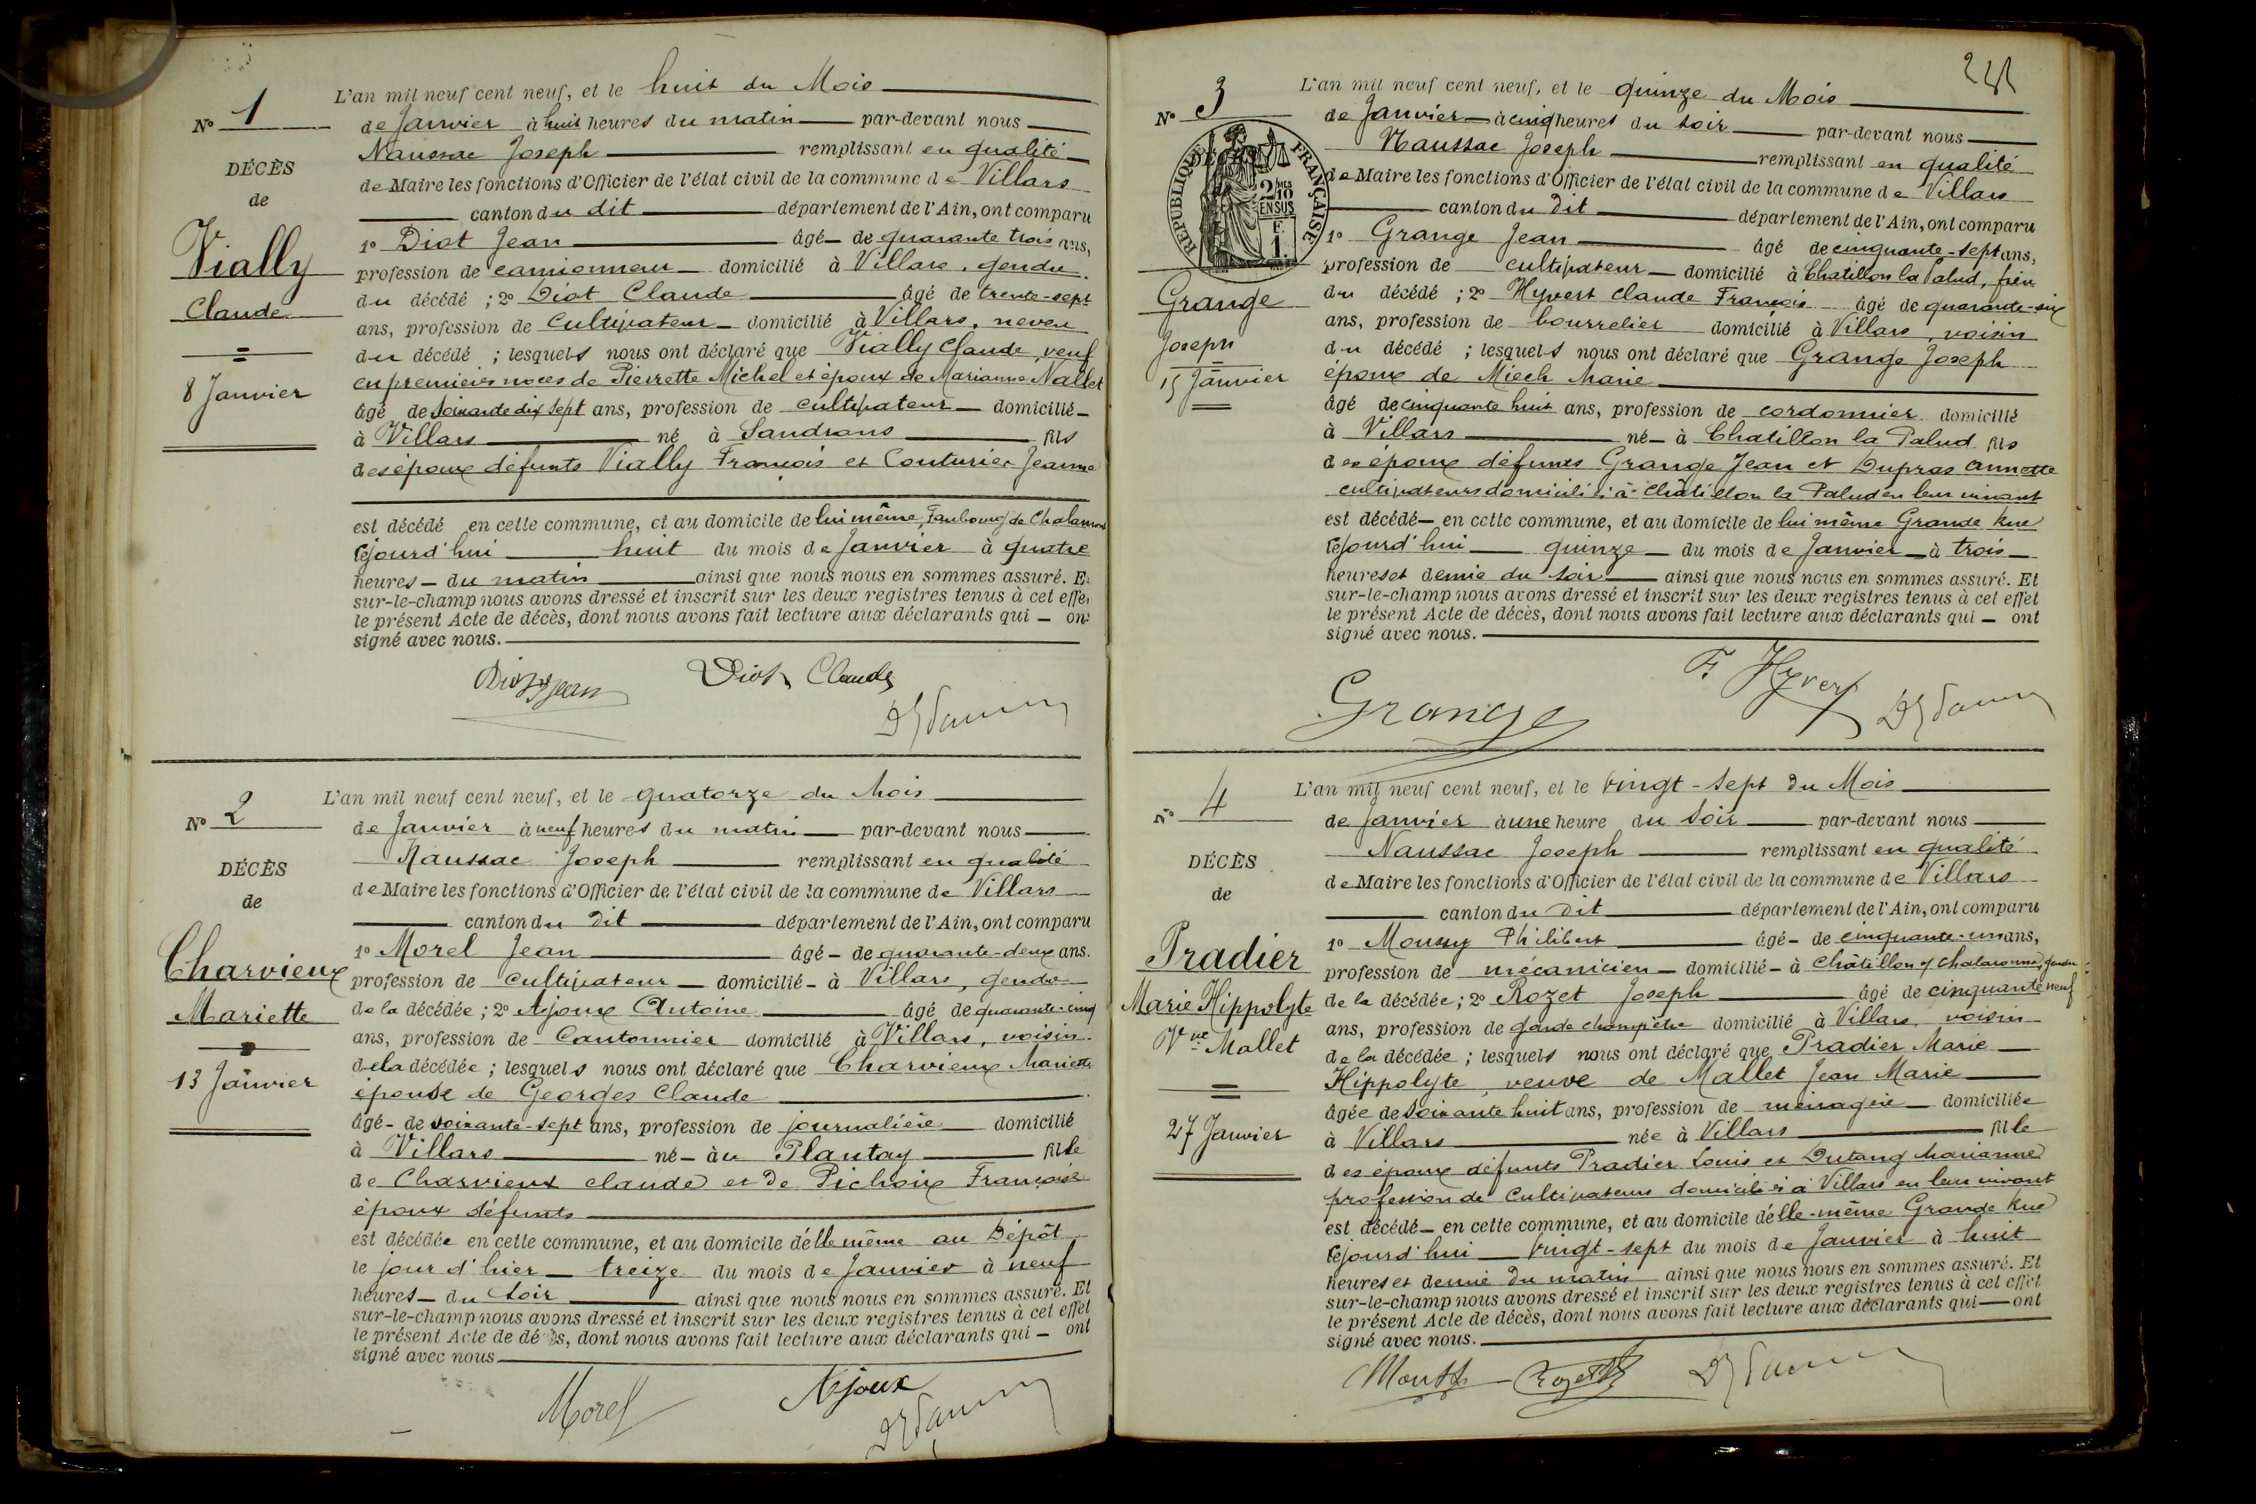 N° 1
DÉCÈS
de
Vially
Claude
8 Janvier
L'an mil neuf cent neuf, et le huit du Mois
de Janvier à huit heures du matin par-devant nous
Naussac Joseph remplissant en qualité
de Maire les fonctions d'Officier de l'état civil de la commune de Villars
canton du dit département de l'Ain, ont comparu
1° Diot Jean âgé de quarante trois ans,
profession de camionneur domicilié à Villars, gendre
du décédé ; 2° Diot Claude âgé de trente-sept
ans, profession de cultivateur domicilié à Villars, neveu
du décédé ; lesquels nous ont déclaré que Vially Claude, veuf
en premières noces de Pierrette Michel et époux de Marianne Nallet
âgé de soixante dix sept ans, profession de cultivateur domicilié
à Villars né à Sandrans fils
des époux défunts Vially François et Couturier Jeanne
est décédé en cette commune, et au domicile de lui même, Faubourg de Chalamont
cejourd'hui huit du mois de Janvier à quatre
heures du matin ainsi que nous nous en sommes assuré. Et
sur-le-champ nous avons dressé et inscrit sur les deux registres tenus à cet effet
le présent Acte de décès, dont nous avons fait lecture aux déclarants qui ont
signé avec nous.
Diot Jean Diot Claude
N° 2
DÉCÈS
de
Charvieux
Mariette
13 Janvier
L'an mil neuf cent neuf, et le quatorze du Mois
de Janvier à neuf heures du matin par-devant nous
Naussac Joseph remplissant en qualité
de Maire les fonctions d'Officier de l'état civil de la commune de Villars
canton du dit département de l'Ain, ont comparu
1° Morel Jean âgé de quarante-deux ans.
profession de cultivateur domicilié à Villars, gendre
de la décédée ; 2° Ajoux Antoine âgé de quarante-cinq
ans, profession de Cantonnier domicilié à Villars, voisin
de la décédée ; lesquels nous ont déclaré que Charvieux Mariette
épouse de Georges Claude
âgé de soixante-sept ans, profession de journalière domicilié
à Villars né au Plantay fille
de Charvieux claude et de Pichoix Françoise
époux défunts
est décédée en cette commune, et au domicile d'elle même au Dépôt
le jour d'hier treize du mois de Janvier à neuf
heures du soir ainsi que nous nous en sommes assuré. Et
sur-le-champ nous avons dressé et inscrit sur les deux registres tenus à cet effet
le présent Acte de décès, dont nous avons fait lecture aux déclarants qui ont
signé avec nous
Morel Ajoux
N° 3
RÉPUBLIQUE FRANÇAISE
2/10
EN SUS
F.
1.
Grange
Joseph
15 Janvier
L'an mil neuf cent neuf, et le quinze du Mois
de Janvier à cinq heures du soir par-devant nous
Naussac Joseph remplissant en qualité
de Maire les fonctions d'Officier de l'état civil de la commune de Villars
canton du dit département de l'Ain, ont comparu
1° Grange Jean âgé de cinquante-sept ans,
profession de cultivateur domicilié à Chatillon la Palud, frère
du décédé ; 2° Hyvert Claude François âgé de quarante-six
ans, profession de bourrelier domicilié à Villars, voisin
du décédé ; lesquels nous ont déclaré que Grange Joseph
époux de Miech Marie
âgé de cinquante huit ans, profession de cordonnier domicilié
à Villars né à Chatillon la Palud fils
des époux défunts Grange Jean et Dupras Annette
cultivateurs domiciliés à Châtillon la Palud en leur vivant
est décédé en cette commune, et au domicile de lui même Grande Rue
cejourd'hui quinze du mois de Janvier à trois
heures et demie du soir ainsi que nous nous en sommes assuré. Et
sur-le-champ nous avons dressé et inscrit sur les deux registres tenus à cet effet
le présent Acte de décès, dont nous avons fait lecture aux déclarants qui ont
signé avec nous.
Grange F. Hyvert
N° 4
DÉCÈS
de
Pradier
Marie Hippolyte
Vve Mallet
27 Janvier
L'an mil neuf cent neuf, et le vingt-sept du Mois
de Janvier à une heure du soir par-devant nous
Naussac Joseph remplissant en qualité
de Maire les fonctions d'Officier de l'état civil de la commune de Villars
canton du dit département de l'Ain, ont comparu
1° Moussy Philibert âgé de cinquante-un ans,
profession de mécanicien domicilié à Châtillon s/ Chalaronne, gendre
de la décédée ; 2° Rozet Joseph âgé de cinquante neuf
ans, profession de garde champêtre domicilié à Villars, voisin
de la décédée ; lesquels nous ont déclaré que Pradier Marie
Hippolyte, veuve de Mallet Jean Marie
âgée de soixante huit ans, profession de ménagère domiciliée
à Villars née à Villars fille
des époux défunts Pradier Louis et Dutang Marianne
profession de Cultivateurs domiciliés à Villars en leur vivant
est décédé en cette commune, et au domicile d'elle-même Grande Rue
cejourd'hui vingt-sept du mois de Janvier à huit
heures et demie du matin ainsi que nous nous en sommes assuré. Et
sur-le-champ nous avons dressé et inscrit sur les deux registres tenus à cet effet
le présent Acte de décès, dont nous avons fait lecture aux déclarants qui ont
signé avec nous.